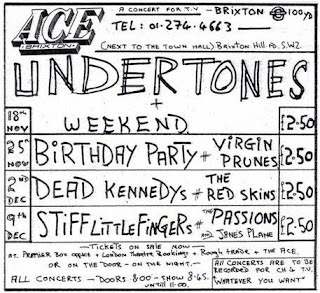 ACE
BRIXTON
A CONCERT FOR T.V - BRIXTON 100 YD
TEL: 01.274.4663
(NEXT TO THE TOWN HALL) BRIXTON HILL S.W2.
UNDERTONES
+
18th NOV WEEKEND £2.50
25th NOV BIRTHDAY PARTY + VIRGIN PRUNES £2.50
2nd DEC DEAD KENNEDYS + THE RED SKINS £2.50
9th DEC STIFF LITTLE FINGERS + THE PASSIONS AND JONES PLANE £2.50
TICKETS ON SALE NOW
AT. PREMIER BOX OFFICE + LONDON THEATRE BOOKINGS + ROUGH TRADE + THE ACE.
OR ON THE DOOR - ON THE NIGHT.
ALL CONCERTS - DOORS 8.00 - SHOW 8.45.
UNTIL 11.00.
ALL CONCERTS ARE TO BE RECORDED FOR CH 4 T.V.
"WHATEVER YOU WANT"